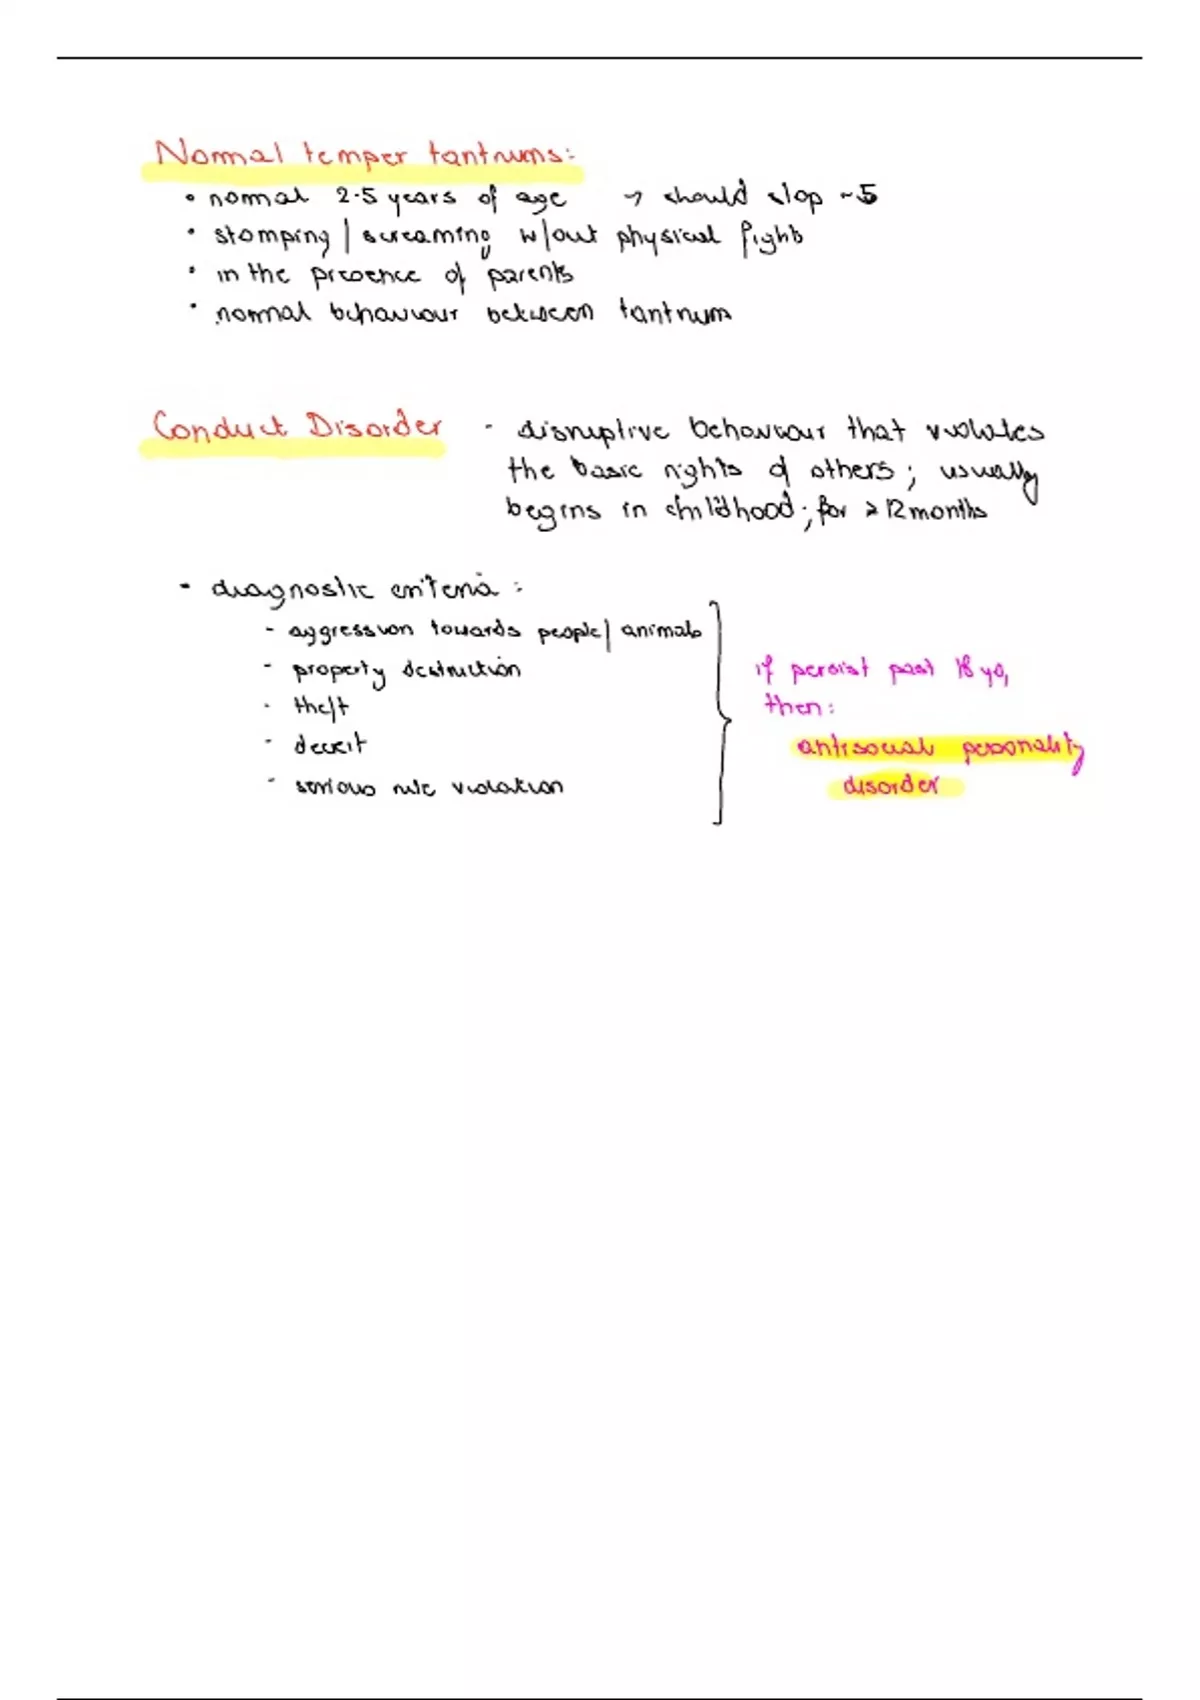 Normal temper tantrums:
• normal 2-5 years of age → should stop ~5
• stomping / screaming w/out physical fights
• in the presence of parents
• normal behaviour between tantrums
Conduct Disorder - disruptive behaviour that violates
the basic rights of others; usually
begins in childhood; for ≥ 12 months
- diagnostic criteria:
- aggression towards people / animals
- property destruction
- theft
- deceit
- serious rule violation
if persist past 18 yo,
then:
antisocial personality
disorder